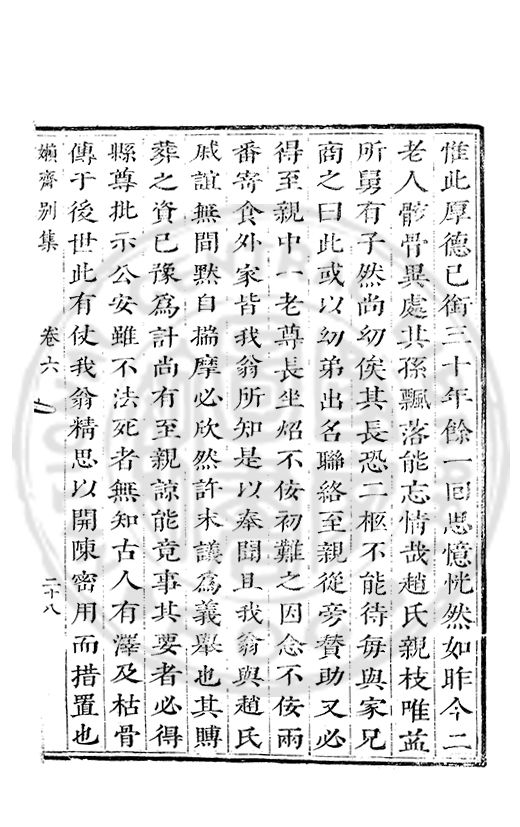 惟此厚德已銜三十年餘一回思憶恍然如昨今二
老人骸骨異處其孫飄落能忘情哉趙氏親枝唯藍
所舅有子然尚幼俟其長恐二柩不能待每與家兄
商之曰此或以幼弟出名聯絡至親從旁贊助又必
得至親中一老尊長坐炤不佞初難之因念不佞兩
番寄食外家皆我翁所知是以奉聞且我翁與趙氏
戚誼無間黙自揣摩必欣然許未議為義舉也其賻
葬之資已豫為計尚有至親諒能竟事其要者必得
縣尊批示公安雖不法死者無知古人有澤及枯骨
傳于後世此有仗我翁精思以開陳密用而措置也
嬾齋別集
卷六
二十八